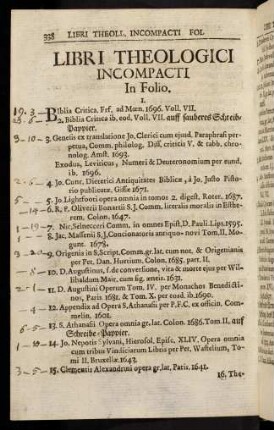 338 LIBRI THEOLL. INCOMPACTI FOL.
LIBRI THEOLOGICI
INCOMPACTI
In Folio.
I.
19. 3 - Biblia Critica. Frf. ad Mœn. 1696. Voll. VII.
2. Biblia Critica ib. eod. Voll. VII. auff sauberes Schreib-
Pappier.
3 - 10 - 3. Genesis ex translatione Jo. Clerici cum ejusd. Paraphrasi per-
petua, Comm. philolog. Diss. criticis V. & tabb. chro-
nolog. Amst. 1693.
Exodus, Leviticus, Numeri & Deuteronomium per eund.
ib. 1696.
4. Jo. Cunr. Dieterici Antiquitates Biblicæ, à Jo. Justo Pisto-
rio publicatæ. Gissæ 1671.
5. Jo. Lightfooti opera omnia in tomos 2. digest. Roter. 1687.
6. R. P. Oliverii Bonartii S.J. Comm. literalis moralis in Esthe-
rem. Colon. 1647.
7. Nic. Selnecceri Comm. in omnes Epist. D. Pauli. Lips. 1595.
8. Jac. Massenii S.J. Concionatoris antiquo-novi Tom. II. Mo-
gunt. 1678.
9. Origenis in S. Script. Comm. gr. lat. cum not. & Origeniana
per Pet. Dan. Huetium. Colon. 1685. part. II.
10. D. Augustinus, s. de conversione, vita & morte ejus per Wil-
libaldum Mair, cum fig. æneis. 1631.
11. D. Augustini Operum Tom. IV. per Monachos Benedicti-
nos, Paris. 1681 & Tom. X. per eosd. ib. 1690.
12. Appendix ad Opera S. Athanasii per P.F.C. ex officin. Com-
melin. 1601.
13. S. Athanasii Opera omnia gr. lat. Colon. 1686. Tom II. auff
Schreibe-Pappier.
14. Jo. Nepotis Sylvani, Hierosol. Episc. XLIV. Opera omnia
cum tribus Vindiciarum Libris per Pet. Wastelium, To-
mi II. Bruxellæ. 1643.
3 - 5 - 15. Clementis Alexandrini opera gr. lat. Paris. 1641.
16. The-